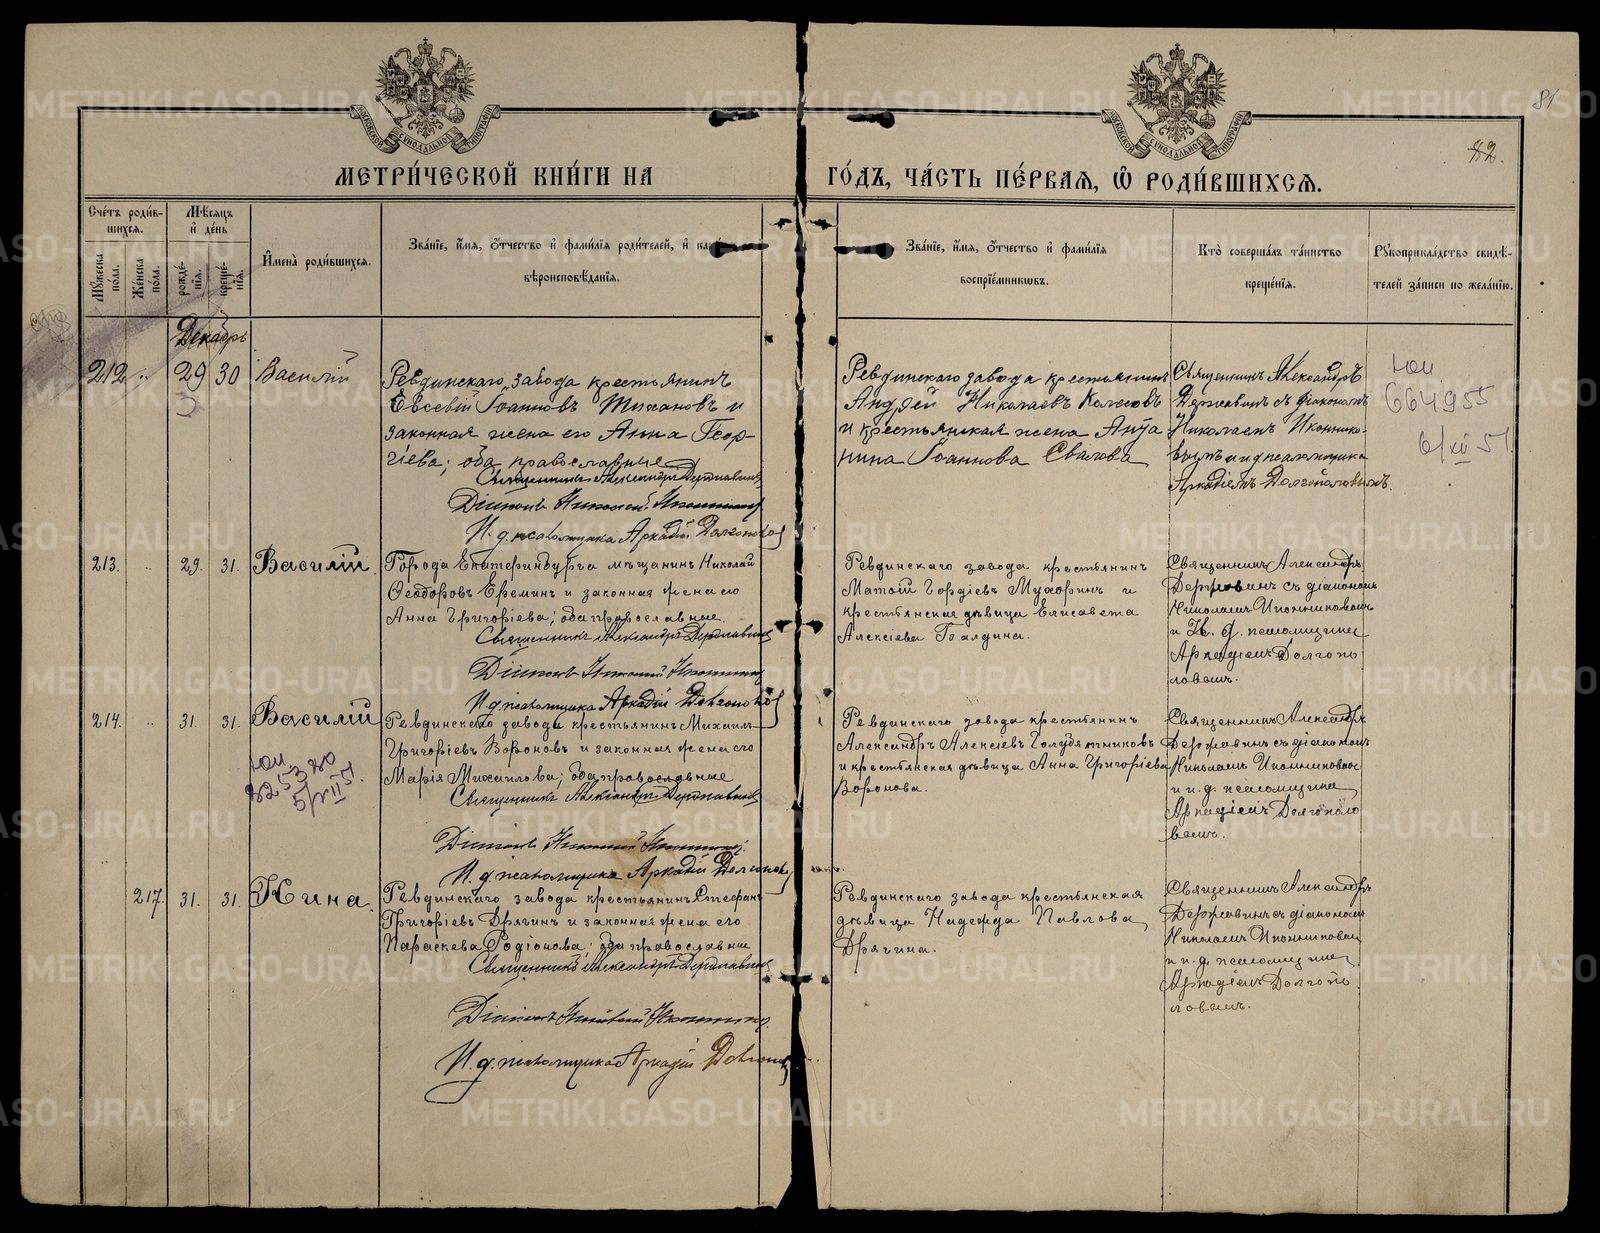 МЕТРИ́ЧЕСКОЙ КНИ́ГИ НА ГО́ДЪ, ЧА́СТЬ ПЕ́РВАЯ, Ѡ҆ РОДИ́ВШИХСЯ.
81
82.
Сче́тъ роди́в-
шихся.
Мѣ́сяцъ
и҆ де́нь
Му́жеска
по́ла.
Же́нска
по́ла.
рожде́-
нїя.
креще́-
нїя.
И҆мена̀ роди́вшихся.
Зва́нїе, и҆́мя, ѻ҆́тчество и҆ фами́лїя роди́телей, и҆
вѣроисповѣ́данїя.
Зва́нїе, и҆́мя, ѻ҆́тчество и҆ фами́лїя
воспрїе́мниковъ.
Кто̀ соверша́лъ та́инство
креще́нїя.
Рукоприкла́дство свидѣ́-
телей за́писи по жела́нїю.
Декабрь
212 .. 29 30 Василій
Ревдинскаго завода крестьянинъ
Евсевій Іоанновъ
законная жена его Анна Геор-
гіева; оба православные
Священникъ Александръ Державинъ
Діаконъ Николай
И. д. псаломщика Аркадій
Ревдинскаго завода крестьянинъ
Андрей Николаевъ
и крестьянская жена Анто
нина Іоаннова
Священникъ Александръ
Державинъ съ діакономъ
Николаемъ Иконнико-
вымъ и и. д. псаломщика
Аркадіемъ Долгополовымъ.
664955
6/XII 51
213. .. 29. 31. Василій.
Города Екатеринбурга мѣщанинъ Николай
Ѳеодоровъ Ереминъ и законная жена его
Анна Григоріева; оба православные.
Священникъ Александръ Державинъ
Діаконъ Николай
И. д. псаломщика Аркадій
Ревдинскаго завода крестьянинъ
Матѳій Гордіевъ Мухоринъ и
крестьянская дѣвица Елисавета
Алексіева
Священникъ Александръ
Державинъ съ діакономъ
Николаемъ Иконниковымъ
и И. д. псаломщика
Аркадіемъ Долгопо
ловымъ.
214. .. 31. 31. Василій
Ревдинскаго завода крестьянинъ Михаилъ
Григоріевъ Вороновъ и законная жена его
Марія Михаилова; оба православные
Священникъ Александръ Державинъ
Діаконъ Николай
И. д. псаломщика Аркадій
Ревдинскаго завода крестьянинъ
Александръ Алексіевъ Голубятниковъ
и крестьянская дѣвица Анна Григоріева
Воронова.
Священникъ Александръ
Державинъ съ діакономъ
Николаемъ Иконниковымъ
и и. д. псаломщика
Аркадіемъ Долгополо
вымъ.
217. 31. 31. Нина.
Ревдинскаго завода крестьянинъ Стефанъ
Григоріевъ Дрягинъ и законная жена его
Параскева Родіонова; оба православные
Священникъ Александръ Державинъ
Діаконъ Николай
И. д. псаломщика Аркадій
Ревдинскаго завода крестьянская
дѣвица Надежда Павлова
Дрягина.
Священникъ Александръ
Державинъ съ діакономъ
Николаемъ Иконниковымъ
и и. д. псаломщика
Аркадіемъ Долгопо
ловымъ.